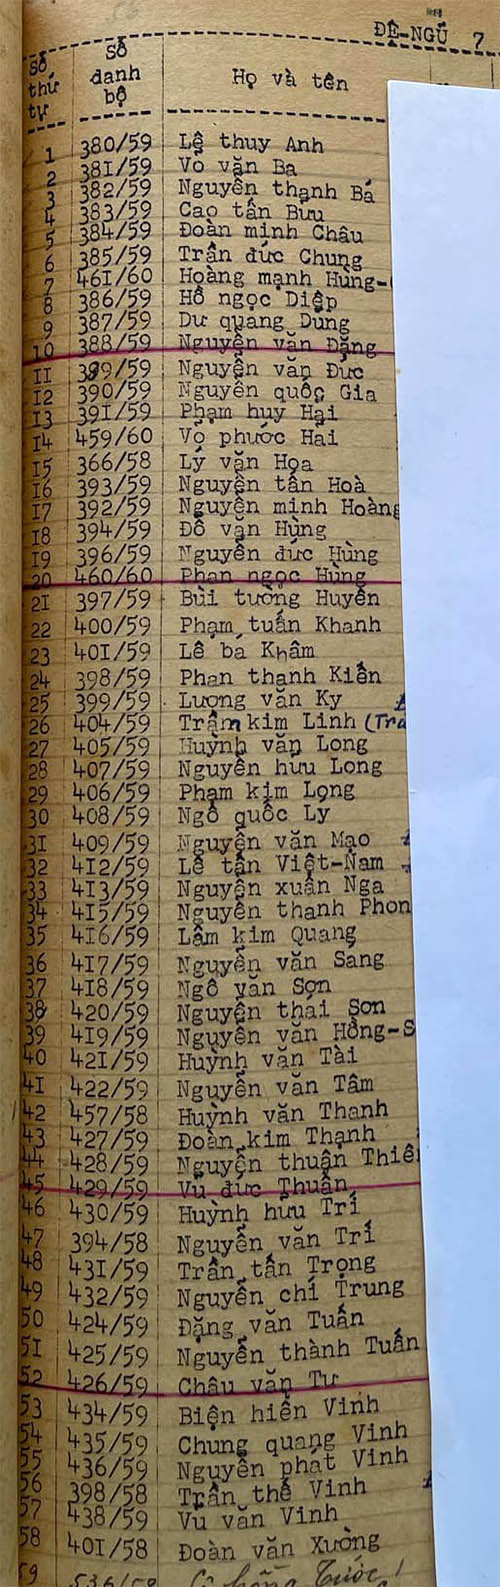 ĐỆ-NGŨ 7
Số thứ tự Số danh bộ Họ và tên
1 380/59 Lê thuy Anh
2 381/59 Võ văn Ba
3 382/59 Nguyễn thạnh Bá
4 383/59 Cao tấn Bưu
5 384/59 Đoàn minh Châu
6 385/59 Trần đức Chung
7 461/60 Hoàng mạnh Hùng-
8 386/59 Hồ ngọc Diệp
9 387/59 Dư quang Dung
10 388/59 Nguyễn văn Đặng
11 389/59 Nguyễn văn Đức
12 390/59 Nguyễn quốc Gia
13 391/59 Phạm huy Hại
14 459/60 Võ phước Hải
15 366/58 Lý văn Họa
16 393/59 Nguyễn tấn Hoà
17 392/59 Nguyễn minh Hoàng
18 394/59 Đỗ văn Hùng
19 396/59 Nguyễn đức Hùng
20 460/60 Phan ngọc Hùng
21 397/59 Bùi tường Huyền
22 400/59 Phạm tuấn Khanh
23 401/59 Lê bá Khâm
24 398/59 Phan thanh Kiến
25 399/59 Lương văn Ky
26 404/59 Trầm kim Linh (Tra
27 405/59 Huỳnh văn Long
28 407/59 Nguyễn hưu Long
29 406/59 Phạm kim Long
30 408/59 Ngô quốc Ly
31 409/59 Nguyễn văn Mạo
32 412/59 Lê tấn Việt-Nam
33 413/59 Nguyễn xuân Nga
34 415/59 Nguyễn thanh Phon
35 416/59 Lâm kim Quang
36 417/59 Nguyễn văn Sang
37 418/59 Ngô văn Sơn
38 420/59 Nguyễn thai Sơn
39 419/59 Nguyễn văn Hồng-S
40 421/59 Huỳnh văn Tài
41 422/59 Nguyễn văn Tâm
42 457/58 Huỳnh văn Thanh
43 427/59 Đoàn kim Thạnh
44 428/59 Nguyễn thuận Thiê
45 429/59 Vũ đức Thuận
46 430/59 Huỳnh hữu Trí
47 394/58 Nguyễn văn Trí
48 431/59 Trần tấn Trọng
49 432/59 Nguyễn chí Trung
50 424/59 Đặng văn Tuấn
51 425/59 Nguyễn thành Tuấn
52 426/59 Châu văn Tư
53 434/59 Biện hiển Vinh
54 435/59 Chung quang Vinh
55 436/59 Nguyễn phát Vinh
56 398/58 Trần thế Vinh
57 438/59 Vũ văn Vinh
58 401/58 Đoàn văn Xường
59 536/58